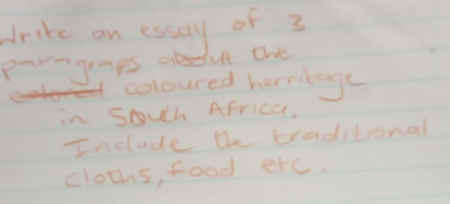 Write an essay of 3
paragraps about the
colored coloured herritage
in South Africa.
Include the traditional
cloths, food etc.